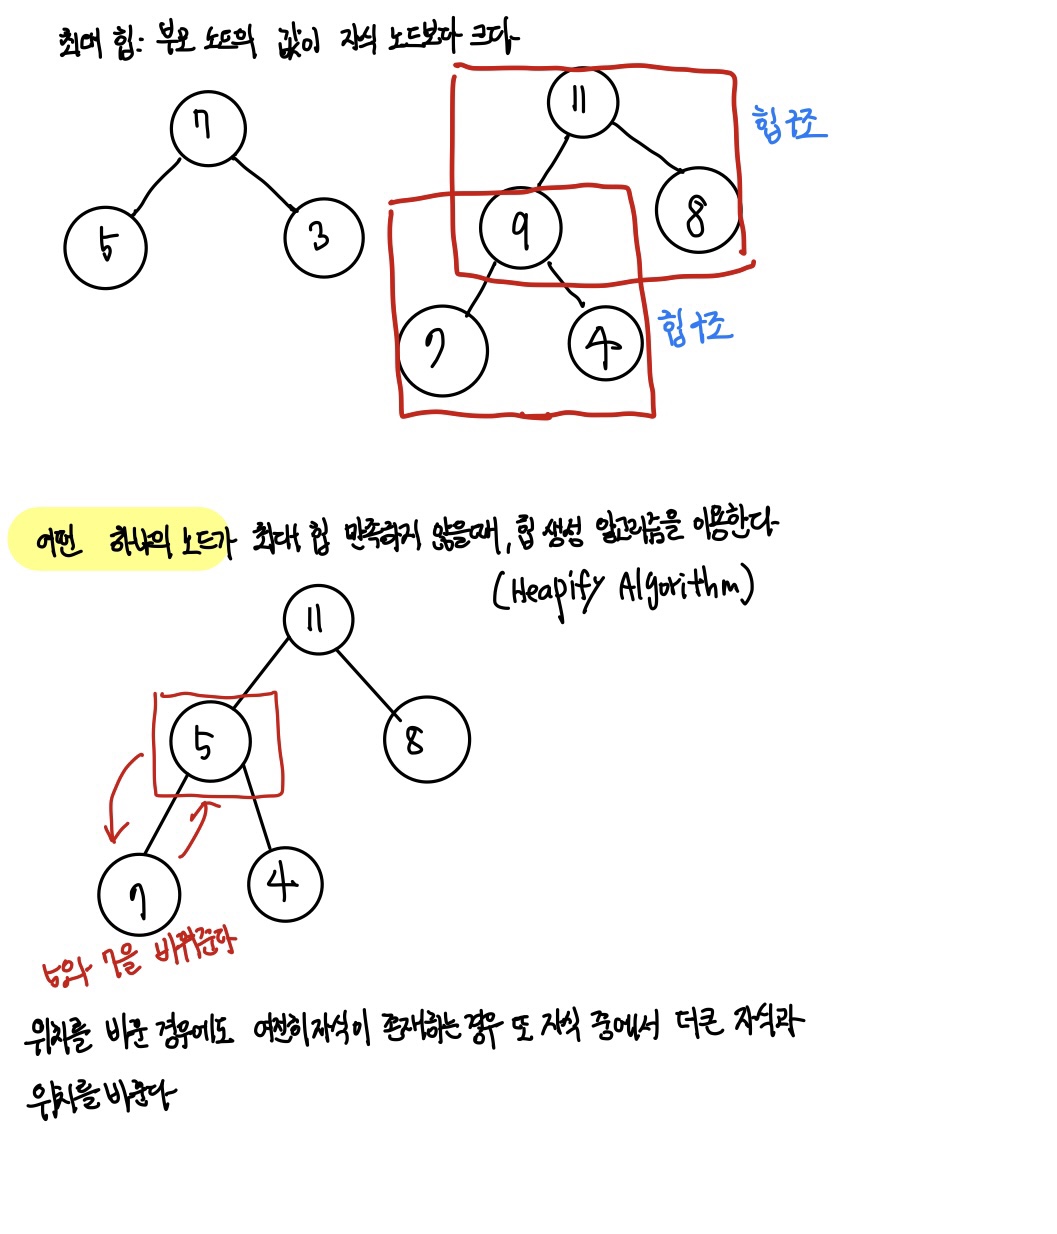 최대 힙: 부모 노드의 값이 자식 노드보다 크다
7
5
3
11
9
8
7
4
힙구조
힙구조
어떤 하나의 노드가 최대 힙 만족하지 않을때, 힙 생성 알고리즘을 이용한다
(Heapify Algorithm)
11
5
8
7
4
5와 7을 바꿔준다
위치를 바꾼 경우에도 여전히 자식이 존재하는 경우 또 자식 중에서 더큰 자식과
위치를 바꾼다